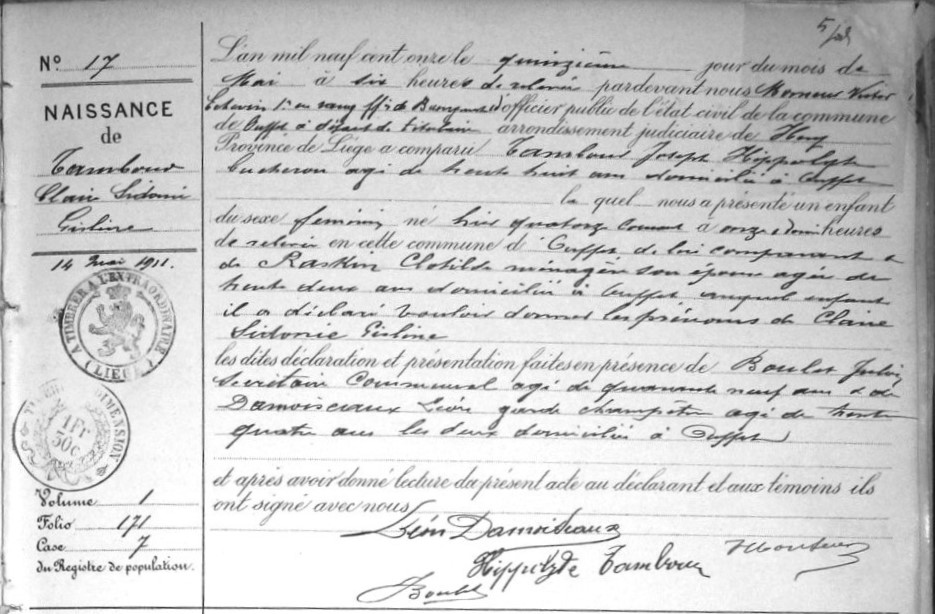 N° 17
NAISSANCE
de
Tambour
Claire Sidonie
Gisline
14 mai 1911.
A TIMBRER A L'EXTRAORDINAIRE
( LIEGE )
DIMENSION
1 Fr
50 c
Volume 1
Folio 171
Case 7
du Registre de population.
L'an mil neuf cent onze le quinzième jour du mois de
Mai à six heures de relevée pardevant nous Victor
Echevin 1er en rang ff de Bourgmestre officier public de l'état civil de la commune
de Ouffet à défaut de titulaire arrondissement judiciaire de Huy
Province de Liége a comparu Tambour Joseph Hippolyte
bucheron agé de trente huit ans domicilié à Ouffet
le quel nous a présenté un enfant
du sexe feminin né hier quatorze courant à onze heures
de relevée en cette commune d' Ouffet de lui comparant &
de Raskin Clotilde ménagère son épouse agée de
trente deux ans domiciliée à Ouffet auquel enfant
il a déclaré vouloir donner les prénoms de Claire
Sidonie Gisline
les dites déclaration et présentation faites en présence de Boulet
Secrétaire Communal agé de quarante neuf ans & de
Damoiseaux Léon garde champêtre agé de trente
quatre ans les deux domiciliés à Ouffet
et après avoir donné lecture du présent acte au déclarant et aux témoins ils
ont signé avec nous
Léon Damoiseaux
Hippolyte Tambour
Boulet